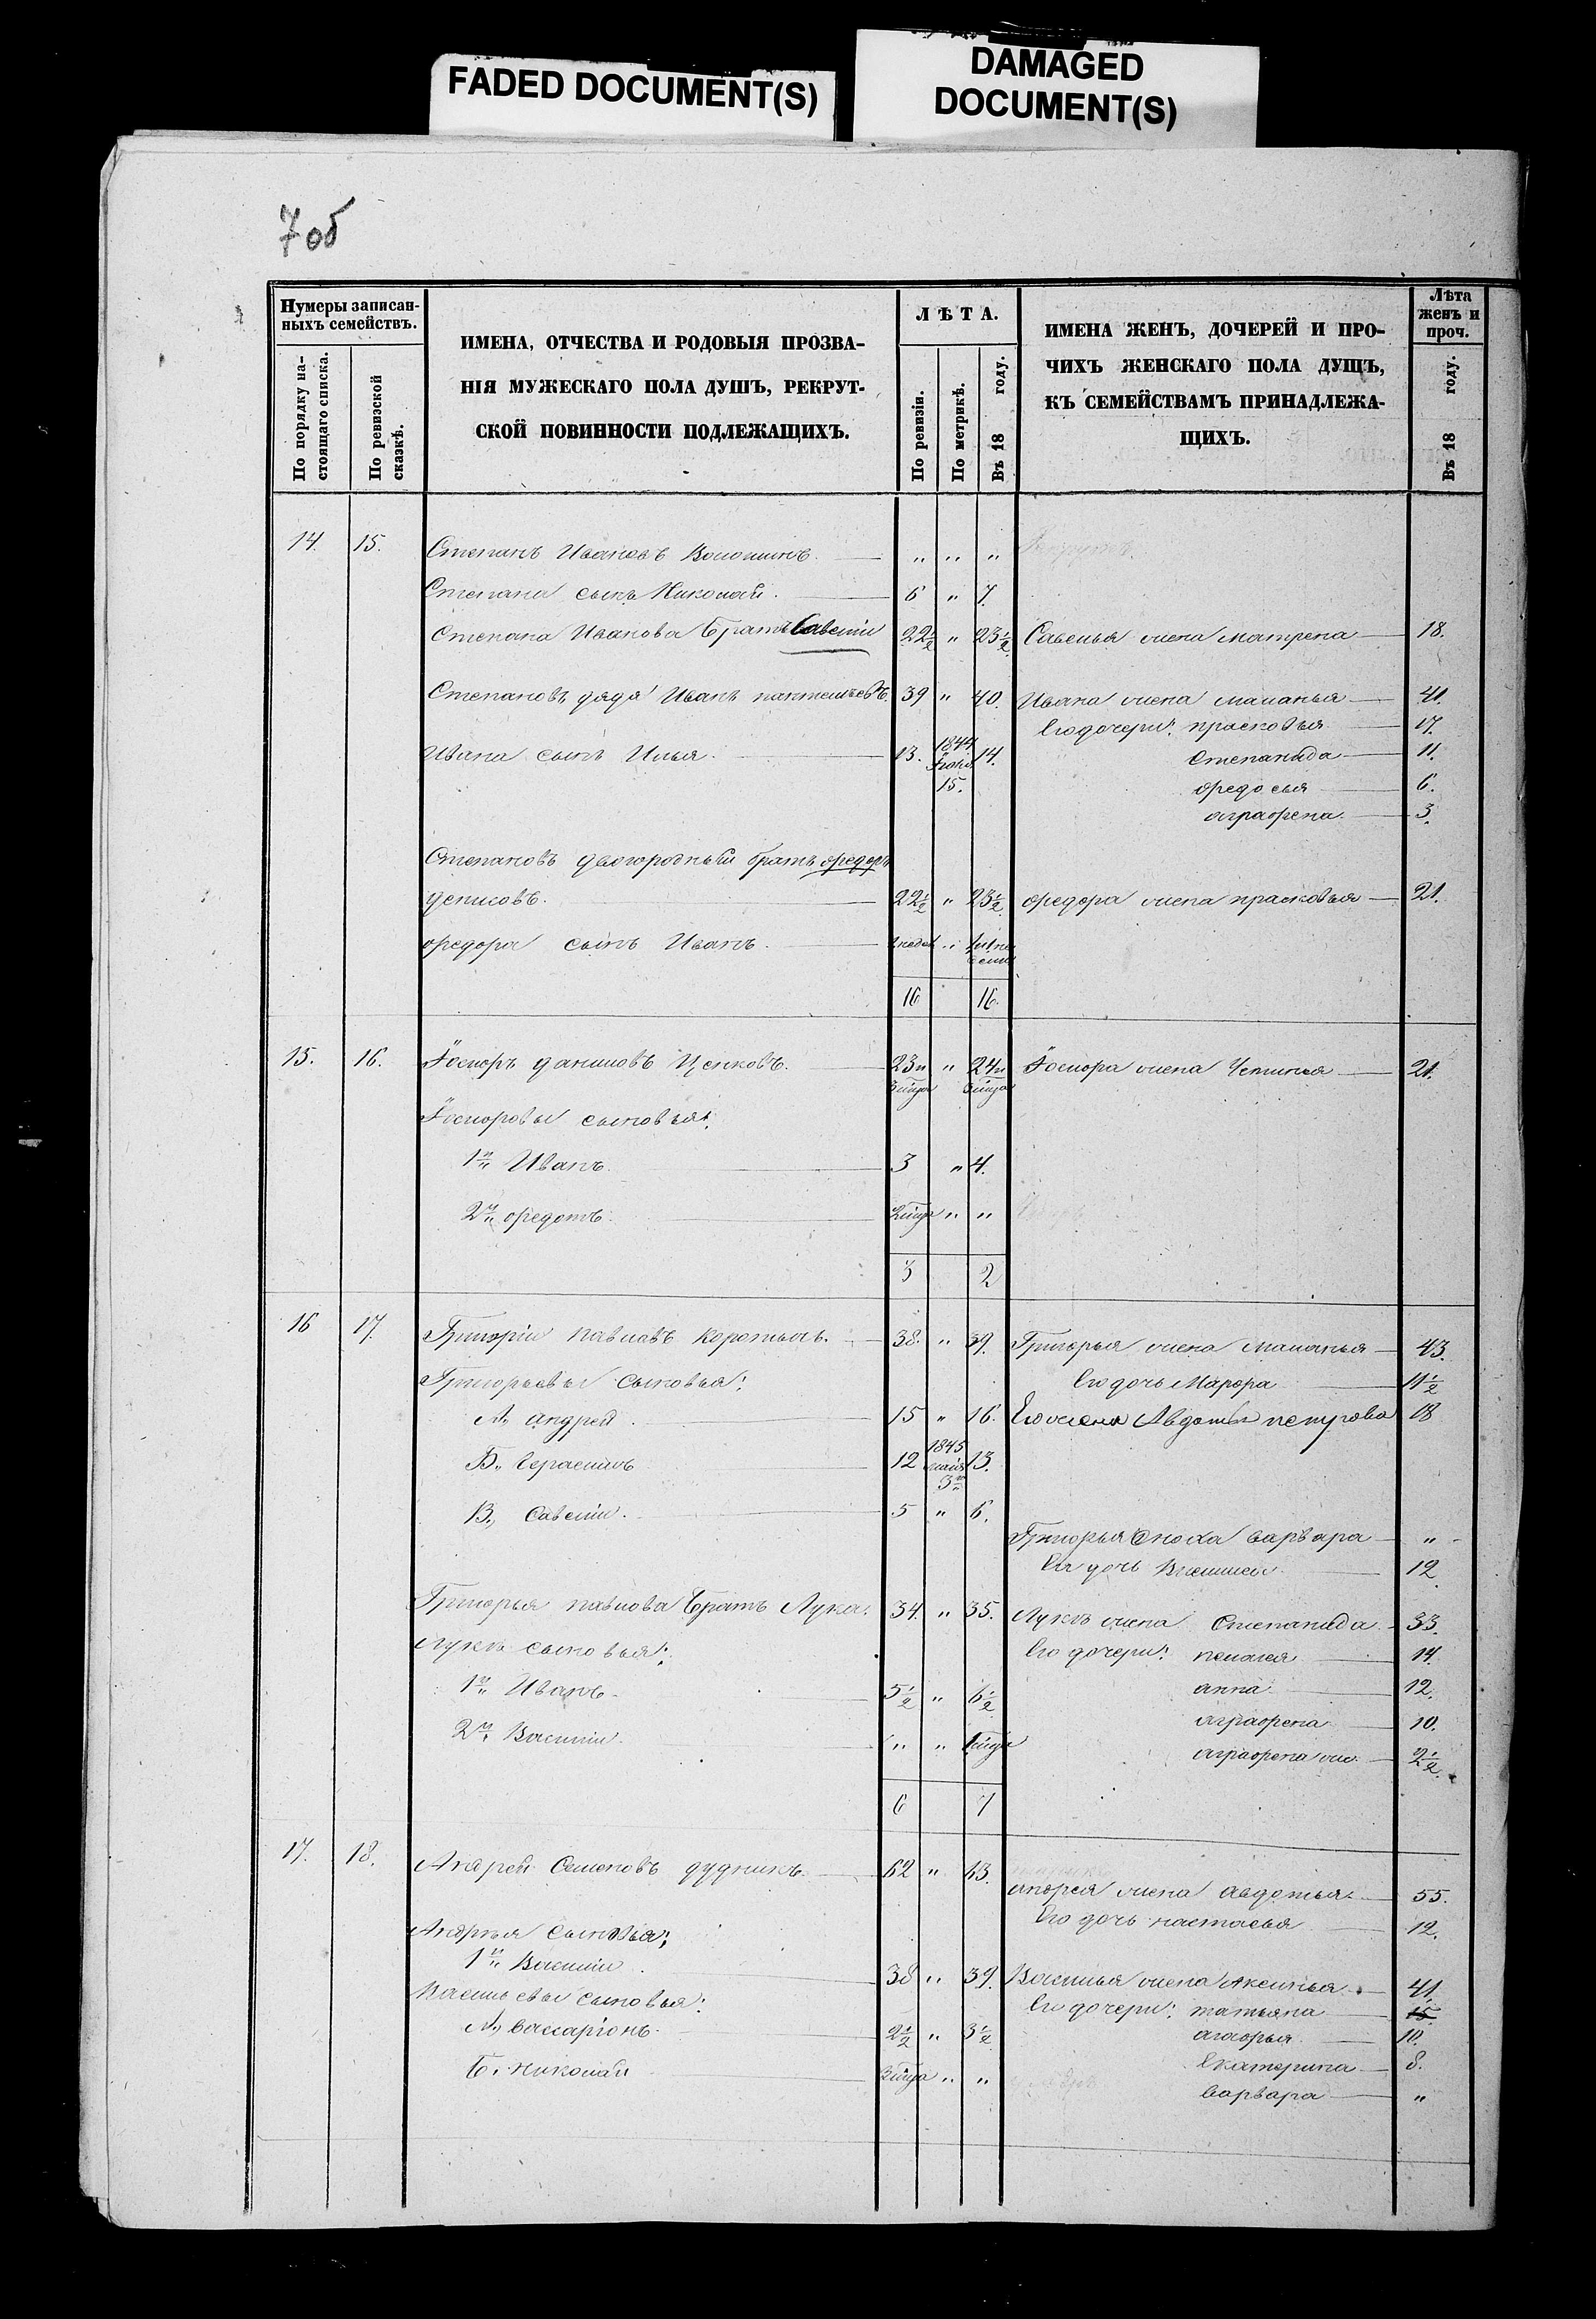 FADED DOCUMENT(S)
DAMAGED
DOCUMENT(S)
7об
Нумеры записан-
ныхъ семействъ.
По порядку на-
стоящаго списка.
По ревизской
сказкѣ.
ИМЕНА, ОТЧЕСТВА И РОДОВЫЯ ПРОЗВА-
НІЯ МУЖЕСКАГО ПОЛА ДУШЪ, РЕКРУТ-
СКОЙ ПОВИННОСТИ ПОДЛЕЖАЩИХЪ.
ЛѢТА.
По ревизіи.
По метрикѣ.
Въ 18 году.
ИМЕНА ЖЕНЪ, ДОЧЕРЕЙ И ПРО-
ЧИХЪ ЖЕНСКАГО ПОЛА ДУШЪ,
КЪ СЕМЕЙСТВАМЪ ПРИНАДЛЕЖА-
ЩИХЪ.
Лѣта
женъ и
проч.
Въ 18 году.
14. 15. Степанъ Ивановъ Волошинъ. " " "
Степана сынъ Николай. 6 " 7.
Степана Иванова братъ Савелій 22½ " 23½ Савелья жена Матрена 18.
Степановъ дядя Иванъ пантелѣевъ. 39 " 40. Ивана жена маланья 41.
Его дочери: прасковья 17.
Ивана сынъ Илья. 13. 1844 15. 14. Степанида 11.
ѳедосья 6.
аграфена. 3.
Степановъ двоюродный братъ ѳедоръ
денисовъ. 22½ " 23½ ѳедора жена прасковья 21.
ѳедора сынъ Иванъ. "
16 16.
15. 16. даниловъ 23 " 24 жена 21.
сыновья:
1й Иванъ. 3 " 4.
2й ѳедотъ. " "
3 2
16 17. Григорій павловъ 38. " 39. Григорья жена маланья 43.
Григорьевы сыновья: Его дочь Марфа 11½
А., андрей. 15 " 16. Его жена Авдотья петрова 18
Б., Герасимъ 12 1845 мая 3го 13.
В., Савелій. 5 " 6.
Григорья сноха варвара "
Ея дочь 12.
Григорья павлова братъ Лука. 34. " 35. Луки жена Степанида 33.
Луки сыновья: Его дочери: пелагея 14.
1й Иванъ. 5½ " 6½ анна 12.
аграфена 10.
2й Василій. " " аграфена 2½
6 7
17. 18. Андрей Семеновъ дудникъ. 62 " 63.
андрея жена авдотья 55.
Его дочь настасья 12.
Андрѣя сыновья:
1й Василій. 38 " 39. Василья жена Аксинья 41.
Васильевы сыновья: Его дочери: татьяна 15.
А., вассаріонъ. 2½ " 3½ агафья 10.
Б., николай " " Екатерина 8.
варвара "